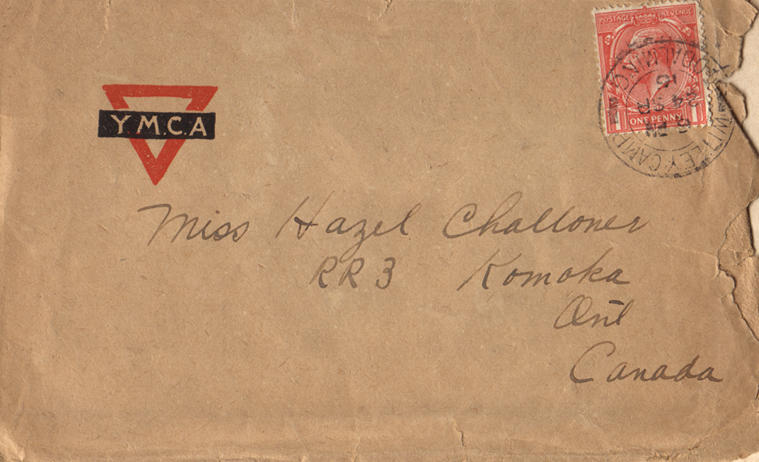 Y.M.C.A
POSTAGE REVENUE
ONE PENNY
WITLEY CAMP
6 PM
24 SP
Miss Hazel Challoner
RR3 Komoka
Ont
Canada